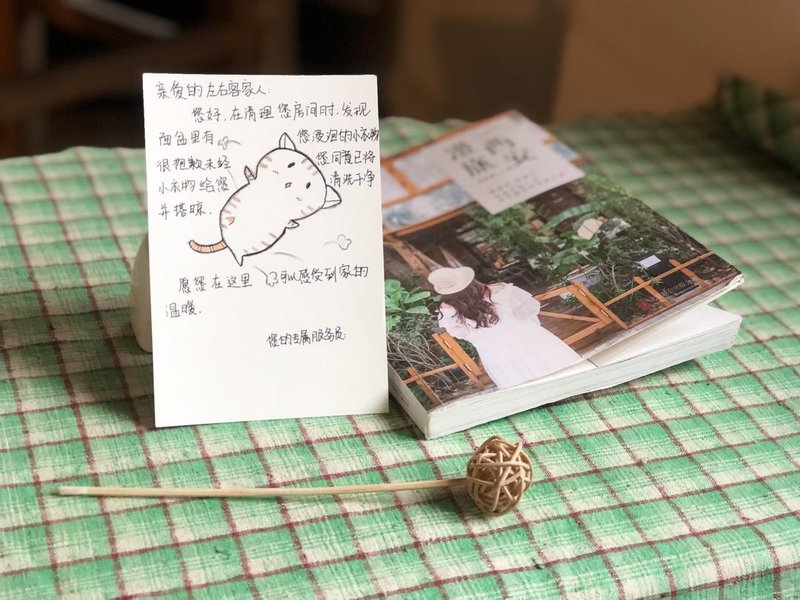 亲爱的左右客家人:
您好,在清理您房间时,发现
面盆里有 您浸泡的小衣物
很抱歉未经 您同意已将
小衣物给您 清洗干净
并搭晾.
愿您在这里 可以感受到家的
温暖.
您的专属服务员